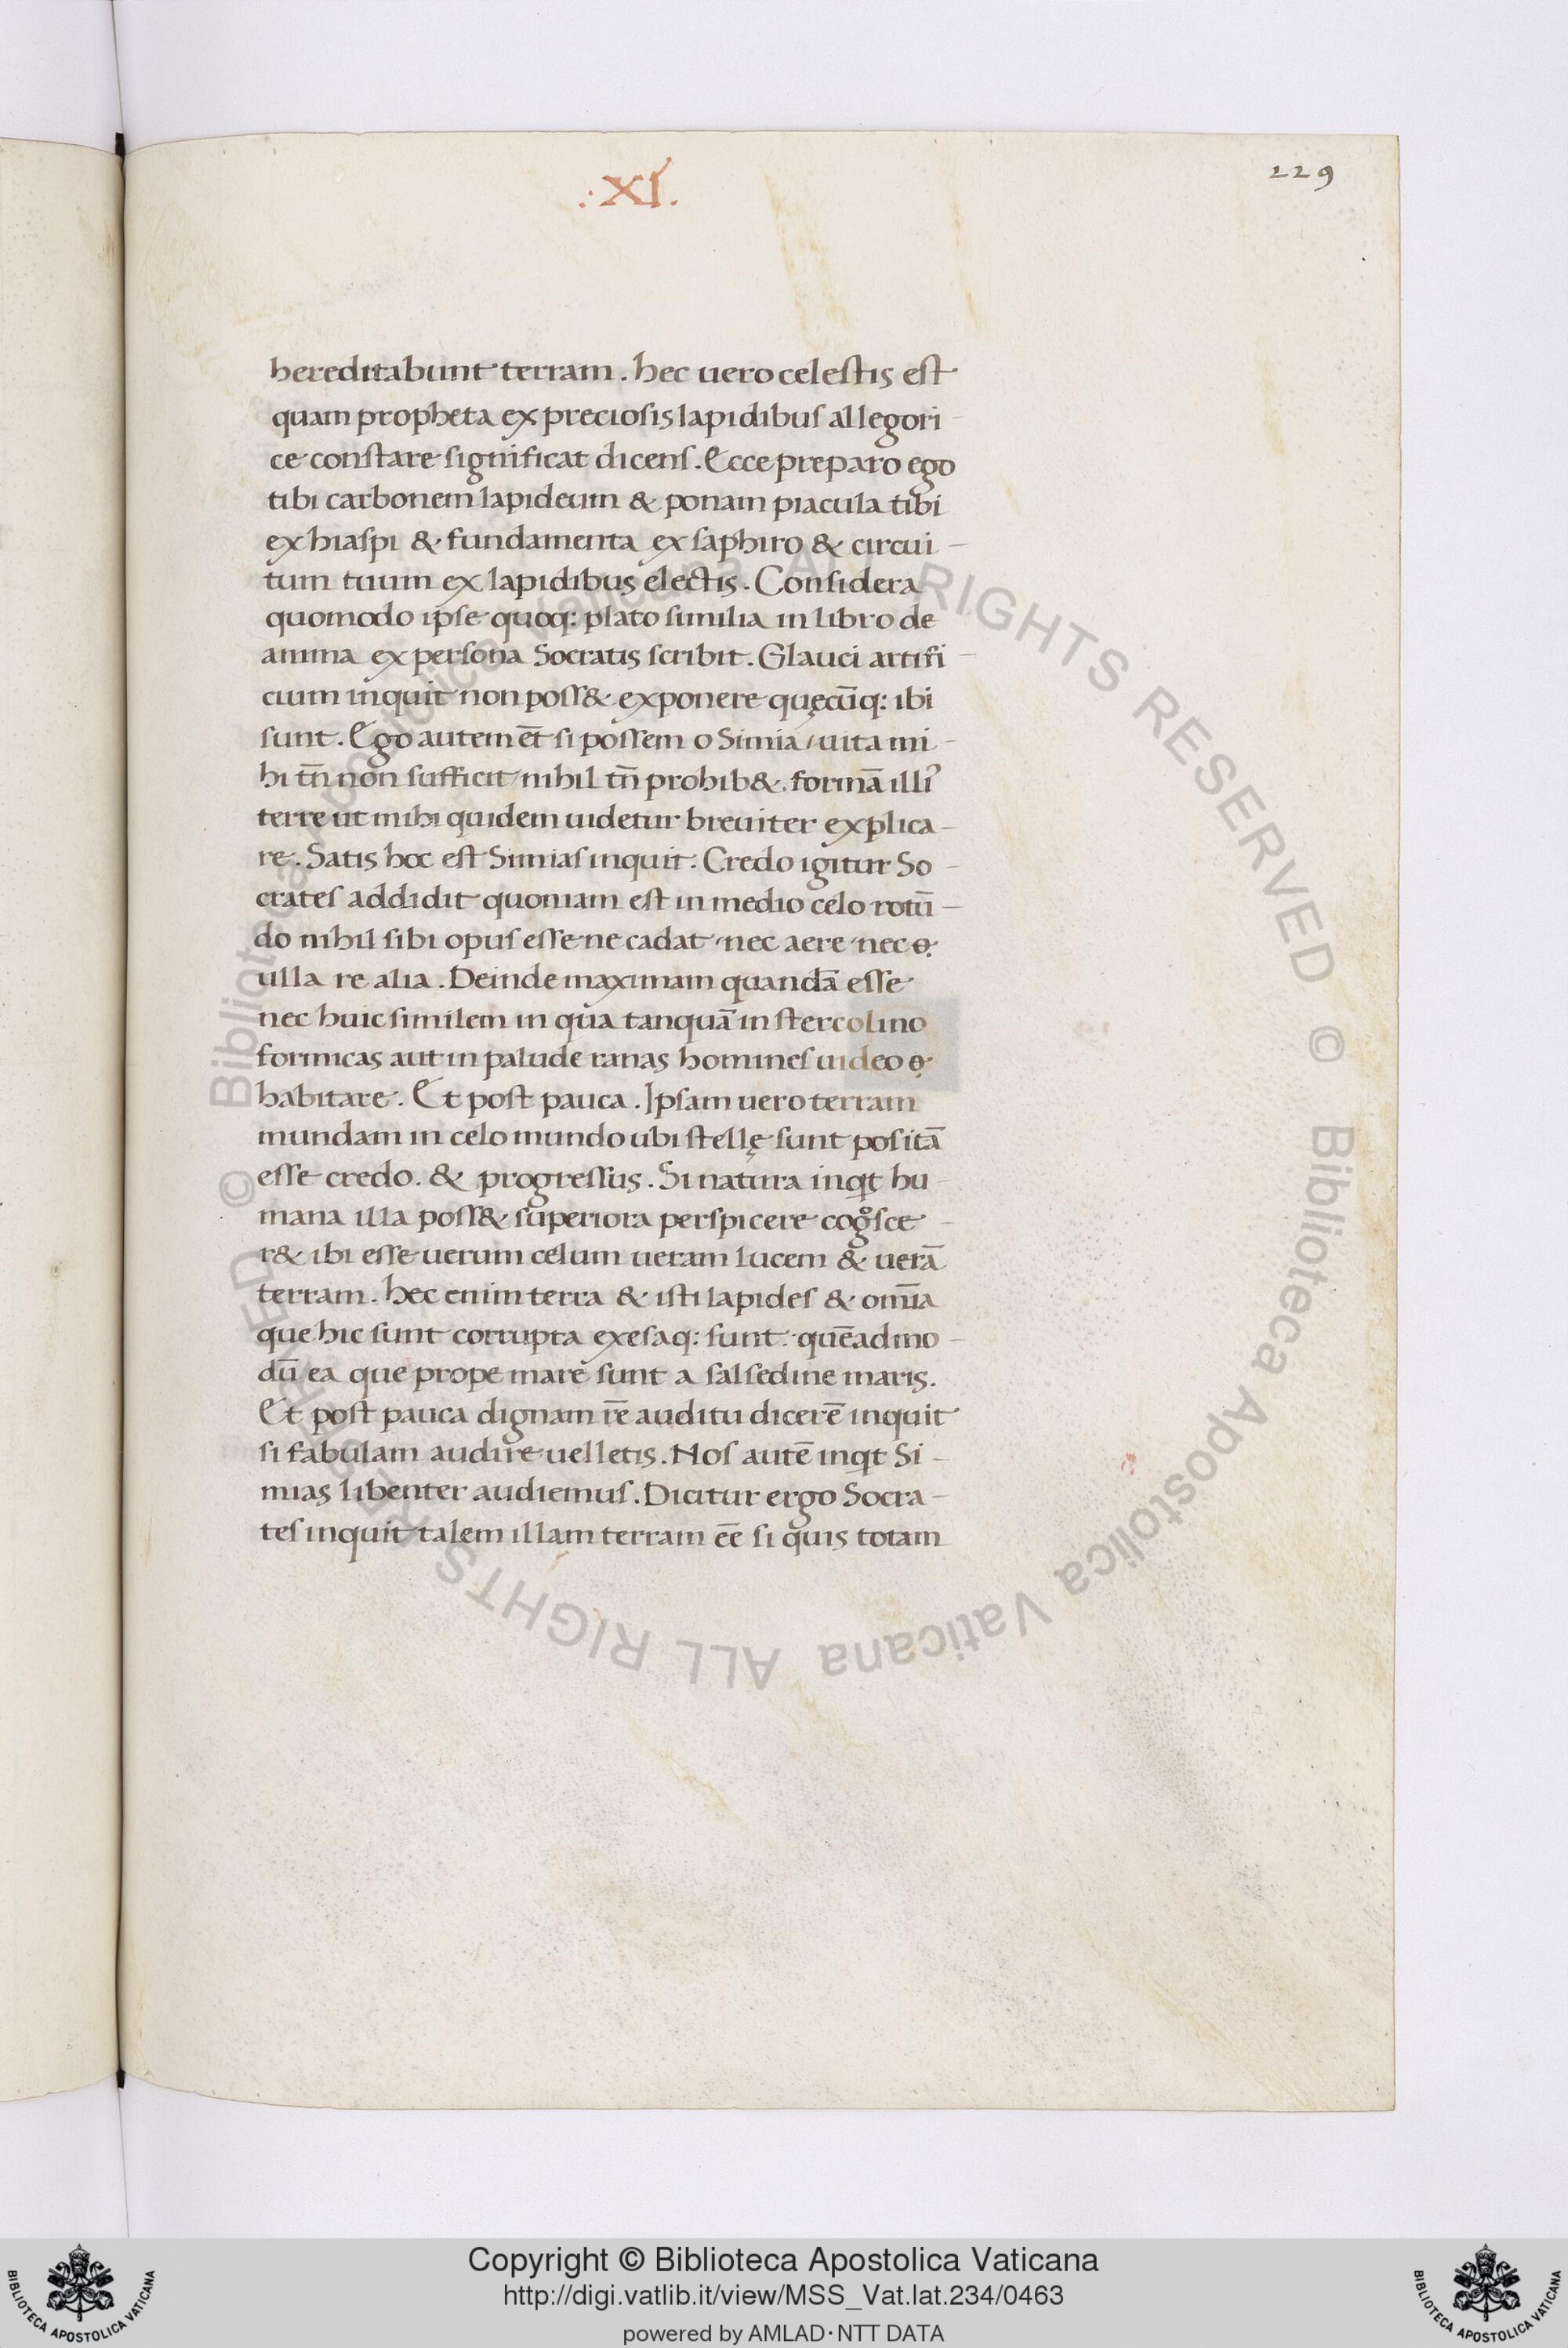 .XI.
229
hereditabunt terram. hec uero celestis est
quam propheta ex preciosis lapidibus allegori-
ce constare significat dicens. Ecce preparo ego
tibi carbonem lapideum & ponam piacula tibi
ex hiaspi & fundamenta ex saphiro & circui-
tum tuum ex lapidibus electis. Considera
quomodo ipse quoq: plato similia in libro de
anima ex persona Socratis scribit. Glauci artifi-
cium inquit non poss& exponere quęcūq: ibi
sunt. Ego autem et̄ si possem o Simia / uita mi-
hi tn̄ non sufficit nihil tn̄ prohib& formā illi᾽
terre ut mihi quidem uidetur breuiter explica-
re. Satis hoc est Simias inquit. Credo igitur So-
crates addidit quoniam est in medio celo rotū-
do nihil sibi opus esse ne cadat nec aere nec
ulla re alia. Deinde maximam quandā esse
nec huic similem in qua tanquā in stercolino
formicas aut in palude ranas homines uideo
habitare. Et post pauca. Ipsam uero terram
mundam in celo mundo ubi stellę sunt positā
esse credo. & progressus. Si natura inqt hu-
mana illa poss& superiora perspicere cog̊sce-
r& ibi esse uerum celum ueram lucem & uerā
terram. hec enim terra & isti lapides & om̄ia
que hic sunt corrupta exesaq: sunt. quēadmo-
dū ea que prope mare sunt a salsedine maris.
Et post pauca dignam rē auditu dicerē inquit
si fabulam audire uelletis. Nos autē inqt Si-
mias libenter audiemus. Dicitur ergo Socra-
tes inquit talem illam terram eē si quis totam
© Biblioteca Apostolica Vaticana ALL RIGHTS RESERVED © Biblioteca Apostolica Vaticana ALL RIGHTS RESERVED
Copyright © Biblioteca Apostolica Vaticana
http://digi.vatlib.it/view/MSS_Vat.lat.234/0463
powered by AMLAD·NTT DATA
BIBLIOTECA APOSTOLICA VATICANA
BIBLIOTECA APOSTOLICA VATICANA